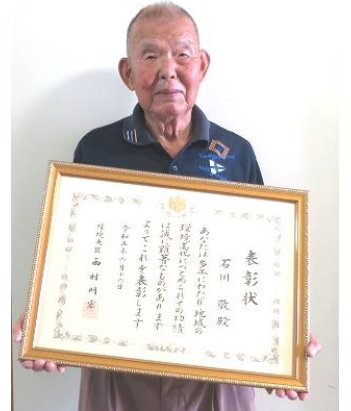 表彰状
石川 敬殿
あなたは多年にわたり地域の
環境美化につとめられその功績
は誠に顕著なものがあります
よってこれを表彰します
令和五年六月十六日
環境大臣 西村明宏